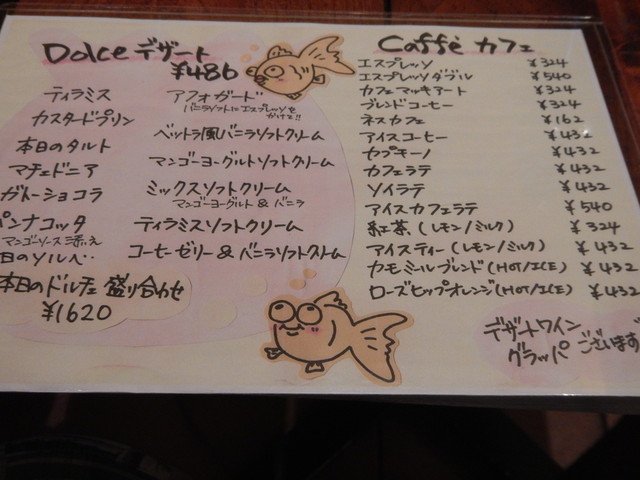 Dolce デザート
¥486
ティラミス
カスタードプリン
本日のタルト
マチェドニア
ガトーショコラ
パンナコッタ
マンゴーソース添え
日のソルベ
本日のドルチェ 盛り合わせ
¥1620
アフォガード
バニラソフトにエスプレッソを
かけて!!
ベットラ風バニラソフトクリーム
マンゴーヨーグルトソフトクリーム
ミックスソフトクリーム
マンゴーヨーグルト & バニラ
ティラミスソフトクリーム
コーヒーゼリー & バニラソフトクリーム
Caffè カフェ
エスプレッソ ¥324
エスプレッソダブル ¥540
カフェマッキアート ¥324
ブレンドコーヒー ¥324
ネスカフェ ¥162
アイスコーヒー ¥432
カプチーノ ¥432
カフェラテ ¥432
ソイラテ ¥432
アイスカフェラテ ¥540
紅茶 (レモン/ミルク) ¥324
アイスティー (レモン/ミルク) ¥432
カモミールブレンド (HOT/ICE) ¥432
ローズヒップオレンジ (HOT/ICE) ¥432
デザートワイン
グラッパ ございます